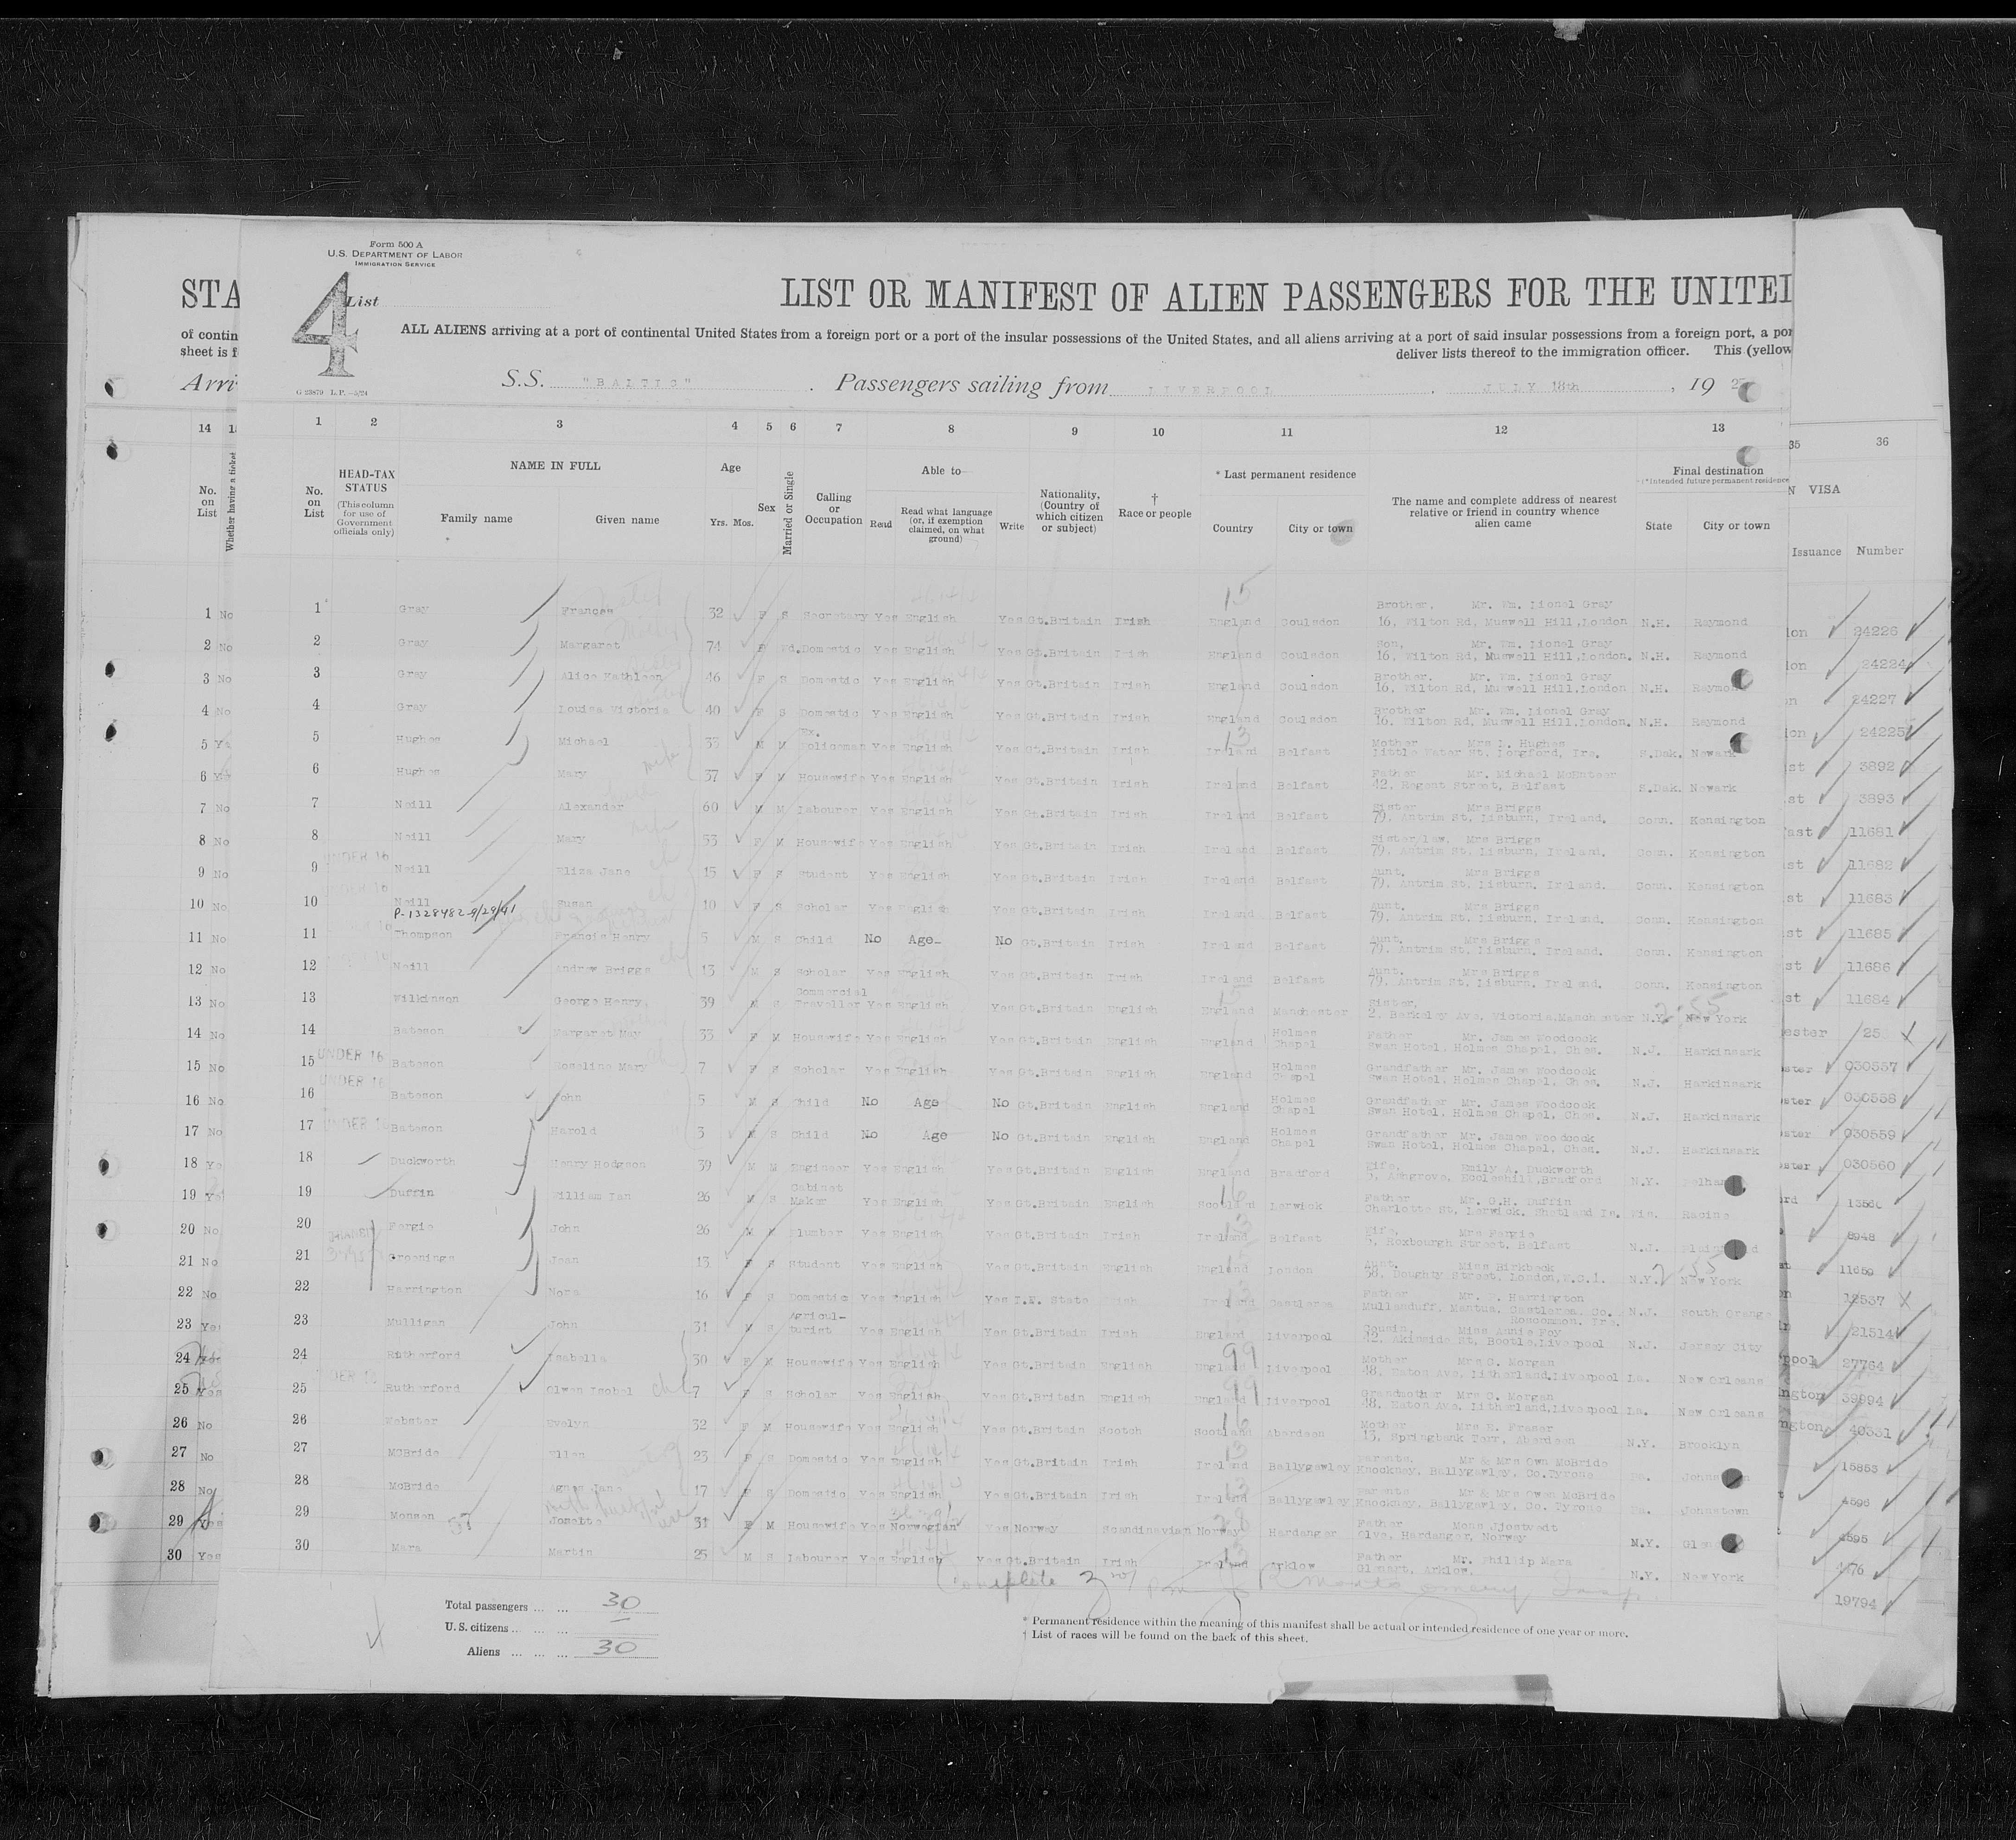 Form 500 A
U.S. DEPARTMENT OF LABOR
IMMIGRATION SERVICE
STA
4 List
LIST OR MANIFEST OF ALIEN PASSENGERS FOR THE UNITED
of contin
ALL ALIENS arriving at a port of continental United States from a foreign port or a port of the insular possessions of the United States, and all aliens arriving at a port of said insular possessions from a foreign port, a por
sheet is f
deliver lists thereof to the immigration officer. This (yellow
Arri
S.S. "BALTIC" . Passengers sailing from LIVERPOOL , JULY 18th , 19
14 1 2 3 4 5 6 7 8 9 10 11 12 13 35 36
No. on List
Whether having a ticket
No. on List
HEAD-TAX STATUS
(This column for use of Government officials only)
NAME IN FULL
Family name Given name
Age
Yrs. Mos.
Sex
Married or Single
Calling or Occupation
Able to
Read
Read what language (or, if exemption claimed, on what ground)
Write
Nationality, (Country of which citizen or subject)
† Race or people
* Last permanent residence
Country City or town
The name and complete address of nearest relative or friend in country whence alien came
Final destination
*(*Intended future permanent residence
State City or town
N VISA
Issuance Number
1 No 1 Gray Frances 32 F S Secretary Yes English Yes Gt.Britain Irish England Coulsdon Brother, Mr. Wm. Lionel Gray 16, Wilton Rd, Muswell Hill, London N.H. Raymond ion 24226
2 No 2 Gray Margaret 74 F Wd. Domestic Yes English Yes Gt.Britain Irish England Coulsdon Son, Mr. Wm. Lionel Gray 16, Wilton Rd, Muswell Hill, London. N.H. Raymond ion 24224
3 No 3 Gray Alice Kathleen 46 F S Domestic Yes English Yes Gt.Britain Irish England Coulsdon Brother. Mr. Wm. Lionel Gray 16, Wilton Rd, Muswell Hill, London N.H. on 24227
4 No 4 Gray Louisa Victoria 40 F S Domestic Yes English Yes Gt.Britain Irish England Coulsdon Brother Mr. Wm. Lionel Gray 16, Wilton Rd, Muswell Hill, London. N.H. Raymond ion 24225
5 Ye 5 Hughes Michael M M Ex. Policeman Yes English Yes Gt.Britain Irish Ireland Belfast Mother Hughes Little Water St. Longford, Ire. S.Dak. Newark st 3892
6 6 Hughes Mary wife 37 F M Housewife Yes English Yes Gt.Britain Irish Ireland Belfast Father Mr. Michael 42, Regent Street, Belfast S.Dak. Newark st 3893
7 No 7 Neill Alexander 60 M M Labourer Yes English Yes Gt.Britain Irish Ireland Belfast Sister Mrs Briggs 79, Antrim St. Lisburn, Ireland. Conn. Kensington fast 11681
8 No 8 Neill Mary 53 F M Housewife Yes English Yes Gt.Britain Irish Ireland Belfast Sister/law, Mrs Briggs 79, Antrim St. Lisburn, Ireland. Conn. Kensington st 11682
9 No 9 UNDER 16 Neill Eliza Jane ch 15 F S Student Yes English Yes Gt.Britain Irish Ireland Belfast Aunt. Mrs Briggs 79. Antrim St. Lisburn. Ireland. Conn. Kensington st 11683
10 No 10 UNDER 16 Neill Susan ch 10 F S Scholar Yes English Yes Gt.Britain Irish Ireland Belfast Aunt. Mrs Briggs 79. Antrim St. Lisburn, Ireland. Conn. Kensington st 11685
P-1328482-9/29/41
11 No 11 Thompson Francis Henry 5 M S Child No Age No Gt.Britain Irish Ireland Belfast Aunt. Mrs Briggs 79, Antrim St. Lisburn, Ireland. Conn. Kensington st 11686
12 No 12 Neill Andrew Briggs ch 13 M S Scholar Yes English Yes Gt.Britain Irish Ireland Belfast Aunt. Mrs Briggs 79, Antrim St. Lisburn, Ireland. Conn. Kensington st 11684
13 No 13 Wilkinson George Henry 39 M S Commercial Traveller Yes English Yes Gt.Britain English England Manchester Sister, 2. Barkeley Ave, Victoria, Manchester N.Y. New York ester
14 No 14 Bateson Margaret May F M Housewife Yes English Yes Gt.Britain English England Holmes Chapel Father Mr. James Woodcock Swan Hotel, Holmes Chapel, Ches. N.J. Harkinsark ster 030557
15 No 15 UNDER 16 Bateson Roseline Mary ch 7 F S Scholar Yes English Yes Gt.Britain English England Holmes Chapel Grandfather Mr. James Woodcock Swan Hotel, Holmes Chapel, Ches. N.J. Harkinsark ster 030558
16 No 16 UNDER 16 Bateson John 5 M S Child No Age No Gt.Britain English England Holmes Chapel Grandfather Mr. James Woodcock Swan Hotel, Holmes Chapel, Ches. N.J. Harkinsark ster 030559
17 No 17 UNDER 16 Bateson Harold 3 M S Child No Age No Gt.Britain English England Holmes Chapel Grandfather Mr. James Woodcock Swan Hotel, Holmes Chapel, Ches. N.J. Harkinsark ster 030560
18 Ye 18 Duckworth Henry Hodgson 39 M M Engineer Yes English Yes Gt.Britain English England Bradford Wife, Emily A. Duckworth Ashgrove, Eccleshill, Bradford N.Y. rd
19 Ye 19 Duffin William Ian 26 M S Cabinet Maker Yes English Yes Gt.Britain English Scotland Lerwick Father Mr. G.H. Duffin Charlotte St. Lerwick, Shetland Is. Wis. Racine 8948
20 No 20 Fergie John 26 M M Plumber Yes English Yes Gt.Britain Irish Ireland Belfast Wife, Mrs Fergie Roxbourgh Street, Belfast N.J. st 11659
21 No 21 Greenings Jean 13 F S Student Yes English Yes Gt.Britain English England London Aunt. Miss Birkbeck 38, Doughty Street, London, W.C.1. N.Y. New York on 12537
22 No 22 Harrington Nora 16 F S Domestic Yes English Yes I.F. State Irish Ireland Castlerea Father Mr. Harrington Mullanduff, Mantua, Castlerea, Co. Roscommon, Ire. N.J. South Orange 21514
23 Yes 23 Mulligan John 31 M S Agricul-turist Yes English Yes Gt.Britain Irish England Liverpool Cousin, Miss Annie Foy 42, Akinside St, Bootle, Liverpool N.J. Jersey City pool 27764
24 24 Rutherford Isabella 30 F M Housewife Yes English Yes Gt.Britain English England Liverpool Mother Mrs C. Morgan 48, Eaton Ave. Litherland, Liverpool La. New Orleans ngton 39994
25 Yes 25 Rutherford Olwen Isobel ch 7 F S Scholar Yes English Yes Gt.Britain English England Liverpool Grandmother Mrs C. Morgan 48, Eaton Ave. Litherland, Liverpool La. New Orleans ngton 40331
26 No 26 Webster Evelyn 32 F M Housewife Yes English Yes Gt.Britain Scotch Scotland Aberdeen Mother Mrs E. Fraser 13, Springbank Terr, Aberdeen N.Y. Brooklyn 15853
27 No 27 McBride Ellen 23 F S Domestic Yes English Yes Gt.Britain Irish Ireland Ballygawley Parents, Mr & Mrs Own McBride Knockney, Ballygawley, Co.Tyrone Pa. 4596
28 No 28 McBride Agnes Jane 17 F S Domestic Yes English Yes Gt.Britain Irish Ireland Ballygawley Parents Mr & Mrs Owen McBride Knockney, Ballygawley, Co. Tyrone Pa. Johnstown 4595
29 Yes 29 Monsen Josette 31 F M Housewife Yes Norwegian Yes Norway Scandinavian Norway Hardanger Father Mons Olve, Hardanger, Norway N.Y. 4476
30 Yes 30 Mara Martin 25 M S Labourer Yes English Yes Gt.Britain Irish Ireland Arklow Father Mr. Phillip Mara Glenart, Arklow. N.Y. New York 19794
Complete
Total passengers ... ... 30
U.S. citizens ... ... ...
Aliens ... ... ... 30
* Permanent residence within the meaning of this manifest shall be actual or intended residence of one year or more.
† List of races will be found on the back of this sheet.